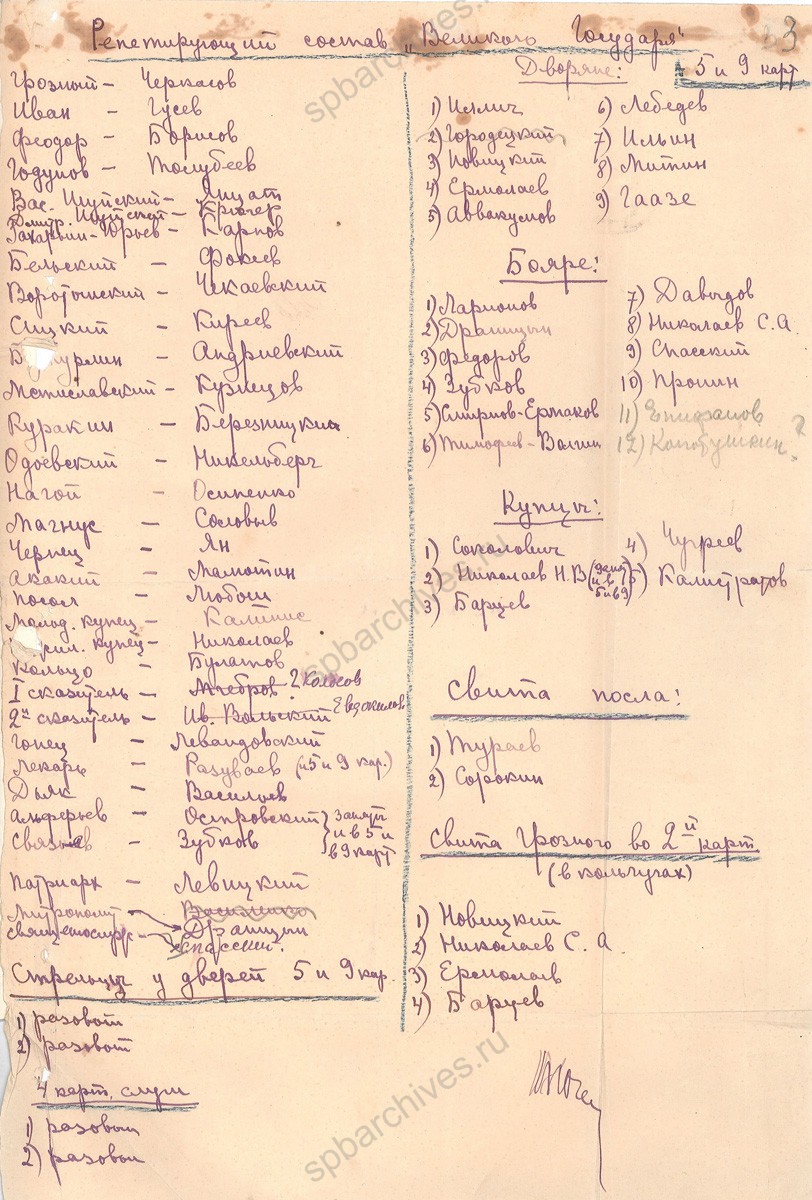 3
Репетирующий состав „Великого Государя"
Грозный – Черкасов
Иван – Гусев
Феодор – Борисов
Годунов – Толубеев
Вас. Шуйский – Янцат
Дмитр. Шуйский – Крюгер
Захарьин-Юрьев – Карпов
Бельский – Фокеев
Воротынский – Чекаевский
Сицкий – Киреев
Андриевский
Мстиславский – Кузнецов
Куракин – Березницкий
Одоевский – Никельберг
Нагой – Осипенко
Магнус – Соловьев
Чернец – Ян
Акакий – Мамотин
Посол – Любош
Молод. купец –
купец – Николаев
Кольцо – Булатов
I сказитель – Мгебров ? Колосов
2й сказитель – Ив. Вольский Евдокимов
Гонец – Левандовский
Лекарь – Разуваев (и 5 и 9 кар.)
Дьяк – Васильев
Алферьев – Островский
Связьев – Зубков
} заняты и в 5 и в 9 карт
Патриарх – Левицкий
Митрополит – Драницын
– Спасский.
Стрельцы у дверей 5 и 9 кар.
1) разовый
2) разовый
4 карт. слуги
1) разовый
2) разовый
Дворяне: 5 и 9 карт
1) Иелич
2) Городецкий
3) Новицкий
4) Ермолаев
5) Аввакумов
6) Лебедев
7) Ильин
8) Митин
9) Гаазе
Бояре:
1) Ларионов
2) Драницын
3) Федоров
4) Зубков
5) Смирнов-Ермаков
6) Тимофеев-Волгин
7) Давыдов
8) Николаев С. А.
9) Спасский
10) Пронин
11) Епифанов
12) Колобушкин ?
Купцы:
1) Соколович
2) Николаев Н.В
3) Барцев
4) Чугреев
5) Калистратов
Свита посла:
1) Тураев
2) Сорокин
Свита Грозного во 2й карт
(в кольчугах)
1) Новицкий
2) Николаев С. А.
3) Ермолаев
4) Барцев
spbarchives.ru
spbarchives.ru
spbarchives.ru
spbarchives.ru